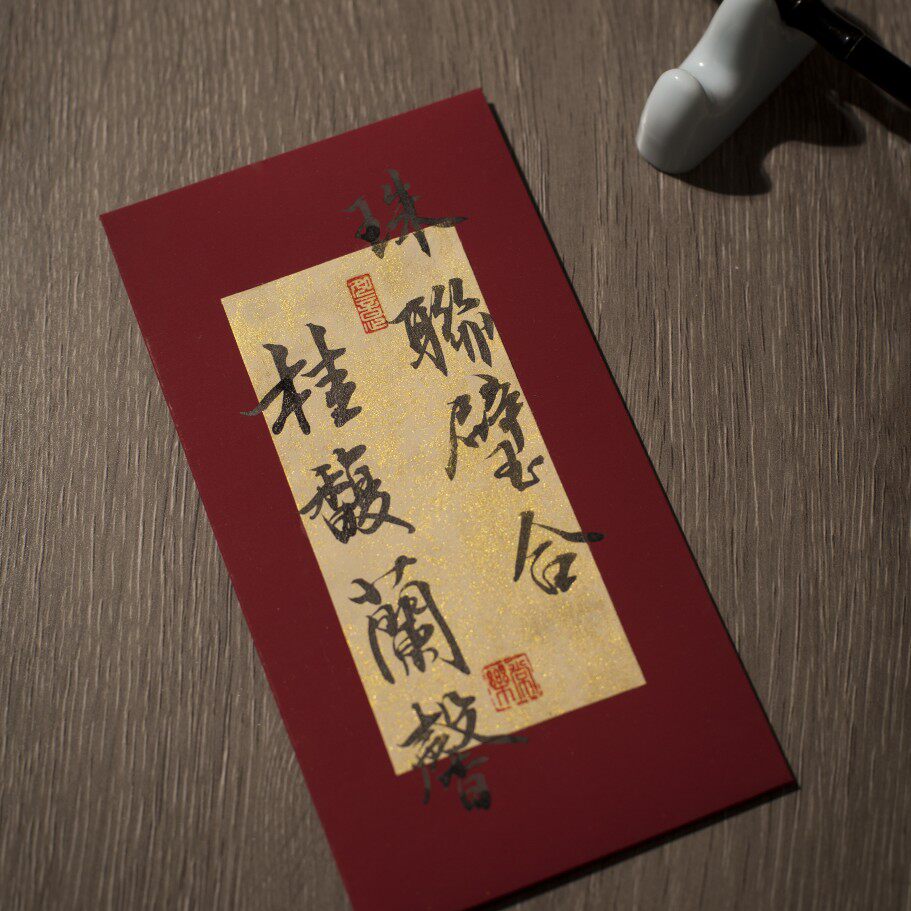 珠聯璧合
桂馥蘭馨
常樂